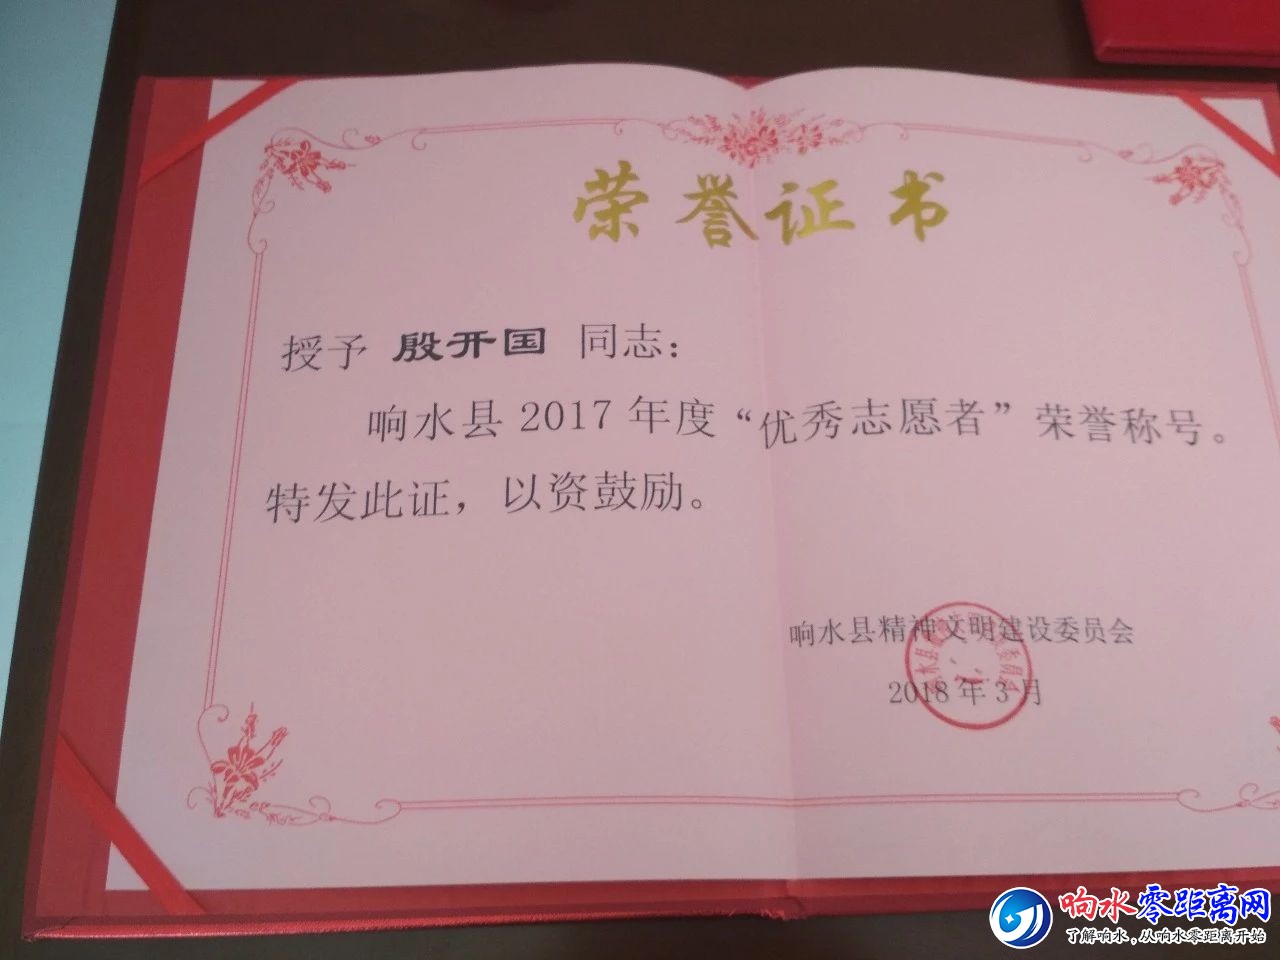 荣誉证书
授予 殷开国 同志：
响水县 2017 年度“优秀志愿者”荣誉称号。
特发此证，以资鼓励。
响水县精神文明建设委员会
2018 年 3 月
响水零距离网
了解响水，从响水零距离开始